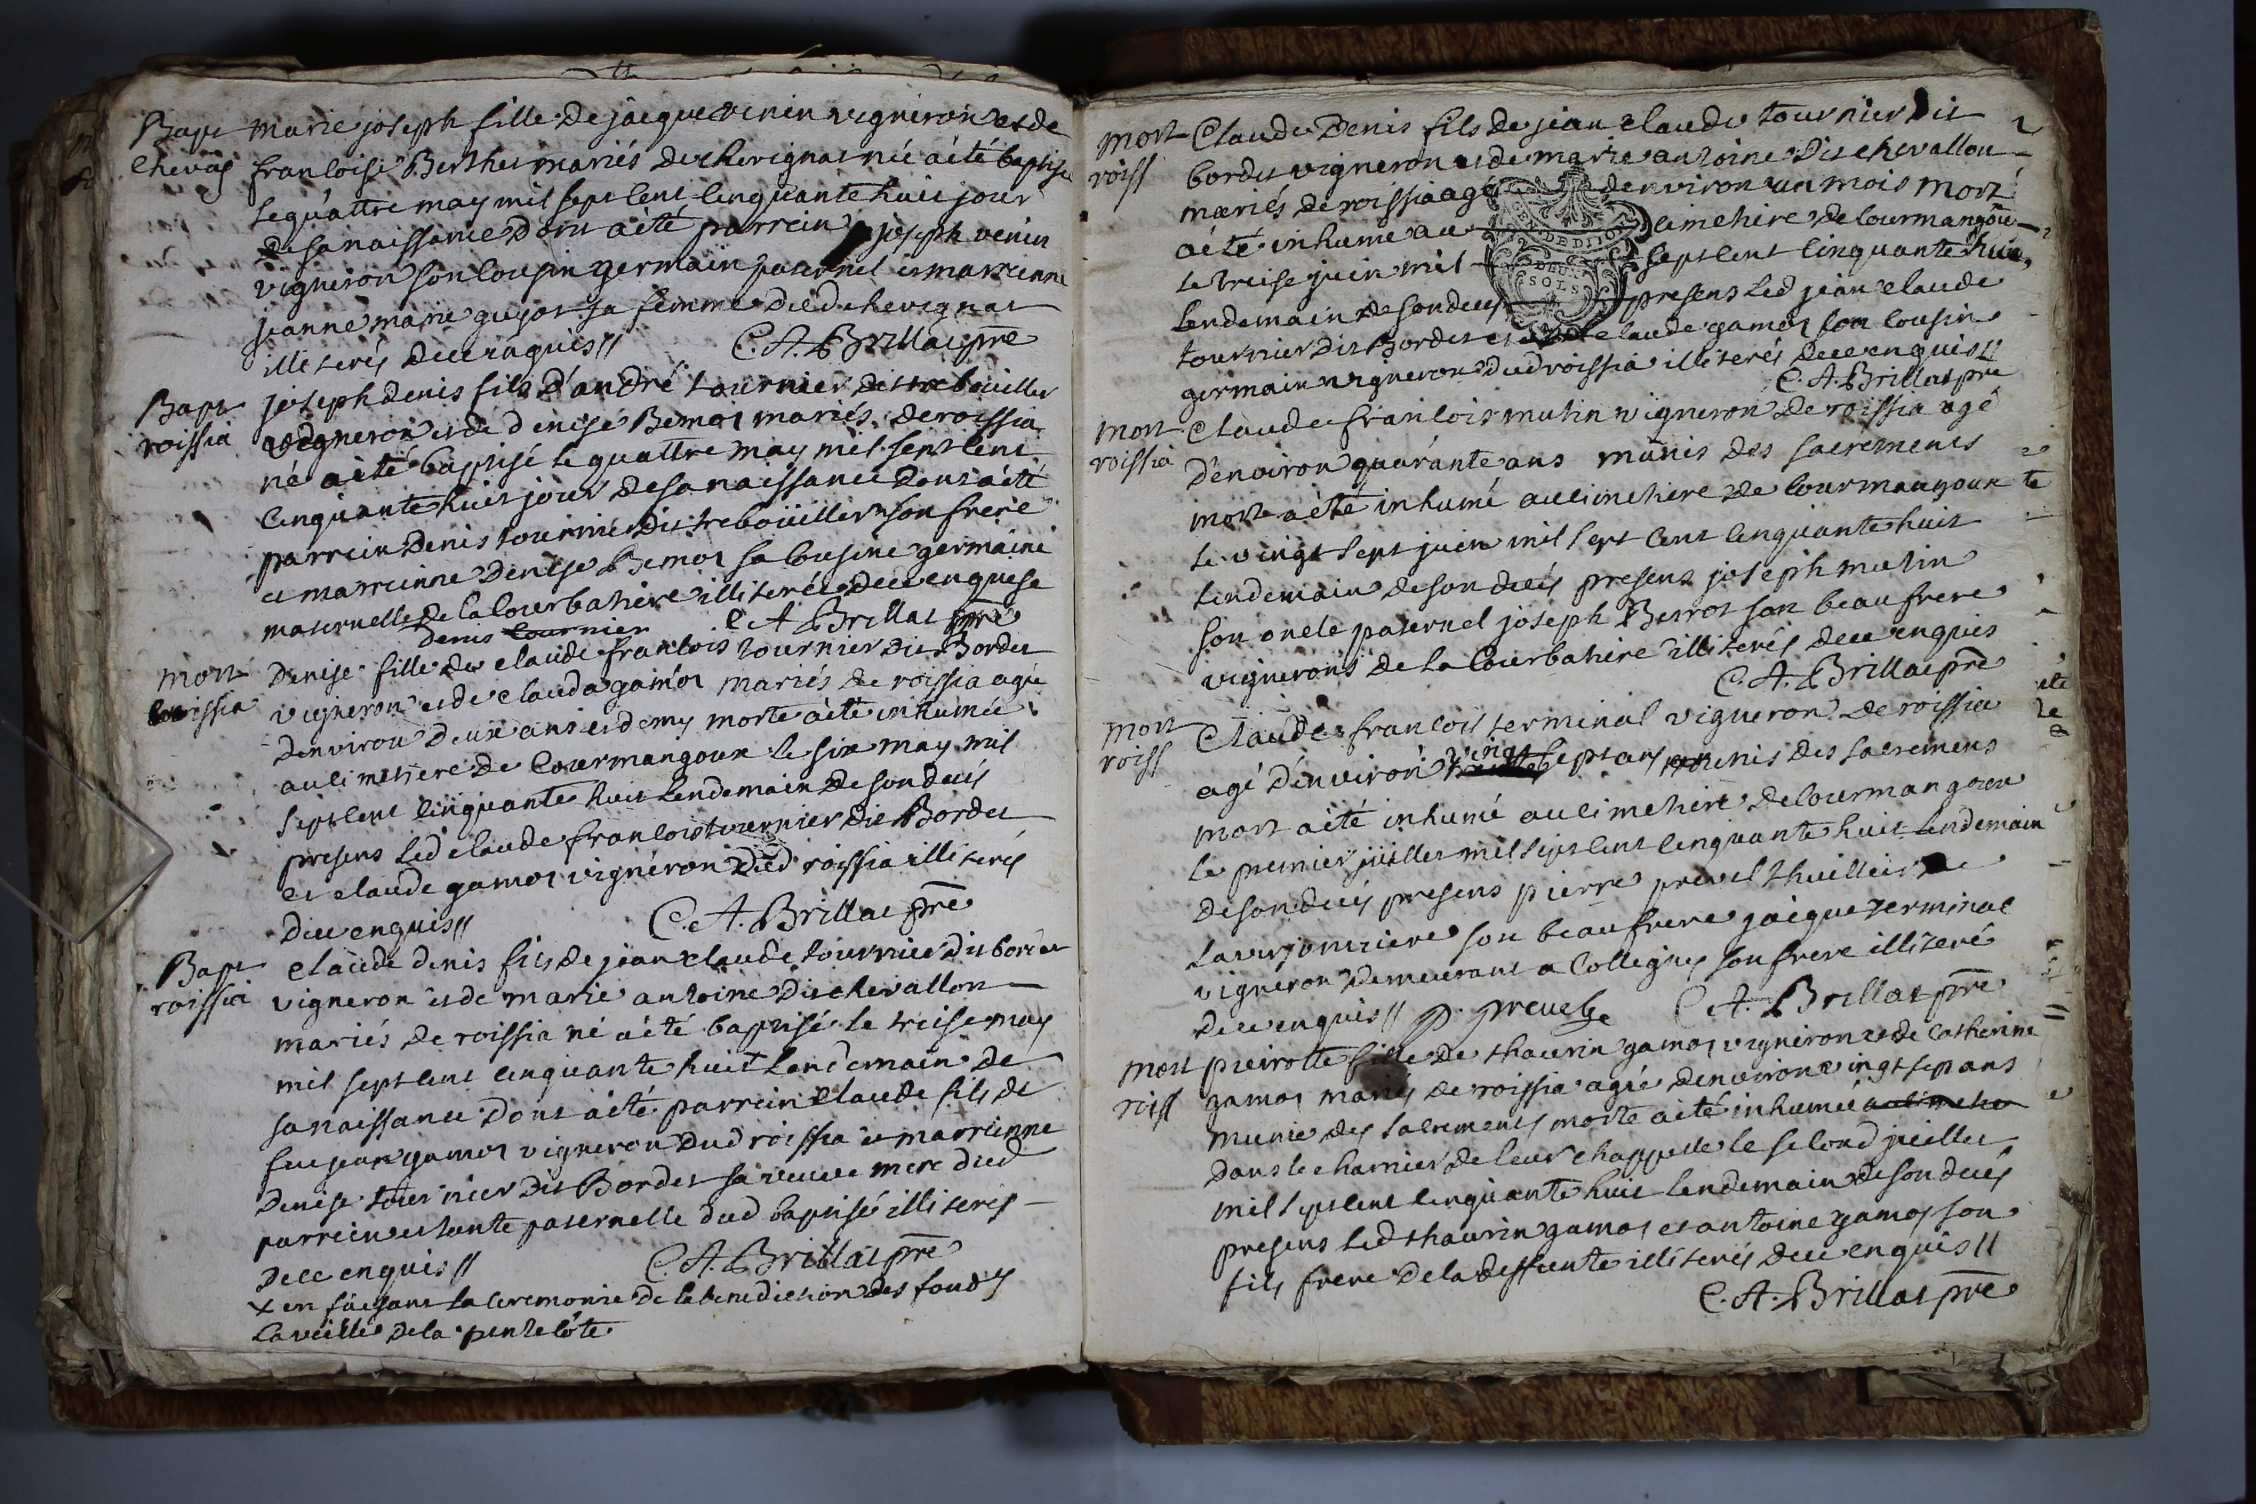 Bapt marie joseph fille de jacque venin vigneron et de
chevag francoise Berthet mariés de chevignat née a été baptisé
le quattre may mil sept cent cinquante huit jour
de sa naissance dont a été parrein joseph venin
vigneron son cousin germain paternel et marreinne
jeanne marie guyot sa femme dud chevignat
illiterés dece enquis// C. A. Brillat pre
Bapt joseph denis fils d'andré tournier dit trebouiller
roissia vigneron et de denise Bernot mariés de roissia
né a été baptisé le quattre may mil sept cent
cinquante huit jour de sa naissance dont a été
parrein denis tournier dit trebouiller son frere
et marreinne denise Bernot sa cousine germaine
maternelle de la courbatiere illiterés dece enquese
denis tournier C A Brillat pre
mort Denise fille de claude francois tournier dit Bordet
roissia vigneron et de clauda gamot mariés de roissia agée
d'environ deux ans et demy morte a été inhumée
au cimetiere de Courmangoux le six may mil
sept cent cinquante huit lendemain de son decés
presens led claude francois tournier dit Bordet
et claude gamot vigneron dud roissia illiterés
dece enquis// C. A. Brillat pre
Bapt claude denis fils de jean claude tournier dit bordet
roissia vigneron et de marie antoine dit chevallon
mariés de roissia né a été baptisé le treise may
mil sept cent cinquante huit landemain de
sa naissance dont a été parrein claude fils de
feu jean gamot vigneron dud roissia et marreinne
denise tournier dit Bordet sa veuve mere dud
parrein et tante paternelle dud baptisé illiterés
dece enquis// C. A. Brillat pre
x en faisant la ceremonie de la benediction des fonds
la veille de la pentecôte
mort Claude Denis fils de jean claude tournier dit
roiss bordet vigneron et de marie antoine dit chevallon
mariés de roissia agé d'environ un mois mort
a été inhumé au cimetiere de Courmangoux
le treise juin mil sept cent cinquante huit
lendemain de son decés presens led jean claude
tournier dit Bordet et claude gamot son cousin
germain vigneron dud roissia illiterés dece enquis//
C. A. Brillat pre
GEN. DE DIJON
DEUX SOLS
mort claude francois mutin vigneron de roissia agé
roissia d'environ quarante ans munis des sacrements
mort a été inhumé au cimetiere de Courmangoux
le vingt sept juin mil sept cent cinquante huit
lendemain de son decés presens joseph mutin
son oncle paternel joseph Berrot son beau frere
vignerons de la Courbatiere illiterés dece enquis
C. A. Brillat pre
mort Claude francois terminal vigneron de roissia
roiss agé d'environ vingt sept ans munis des sacremens
mort a été inhumé au cimetiere de Courmangoux
le premier juillet mil sept cent cinquante huit lendemain
de son decés presens pierre prevel thuillier de
la verjonniere son beau frere jacque terminal
vigneron demeurant a Collegnes son frere illiteré
dece enquis// p. prevel C. A. Brillat pre
mort pierrotte fille de thaurin gamot vigneron et de Catherine
roiss gamot mariés de roissia agée d'environ vingt sept ans
munie des sacrements morte a été inhumée au cimetie
dans le charnier de leur chappelle le second juillet
mil sept cent cinquante huit lendemain de son decés
presens led thaurin gamot et antoine gamot son
fils frere de la deffunte illiterés dece enquis//
C. A. Brillat pre